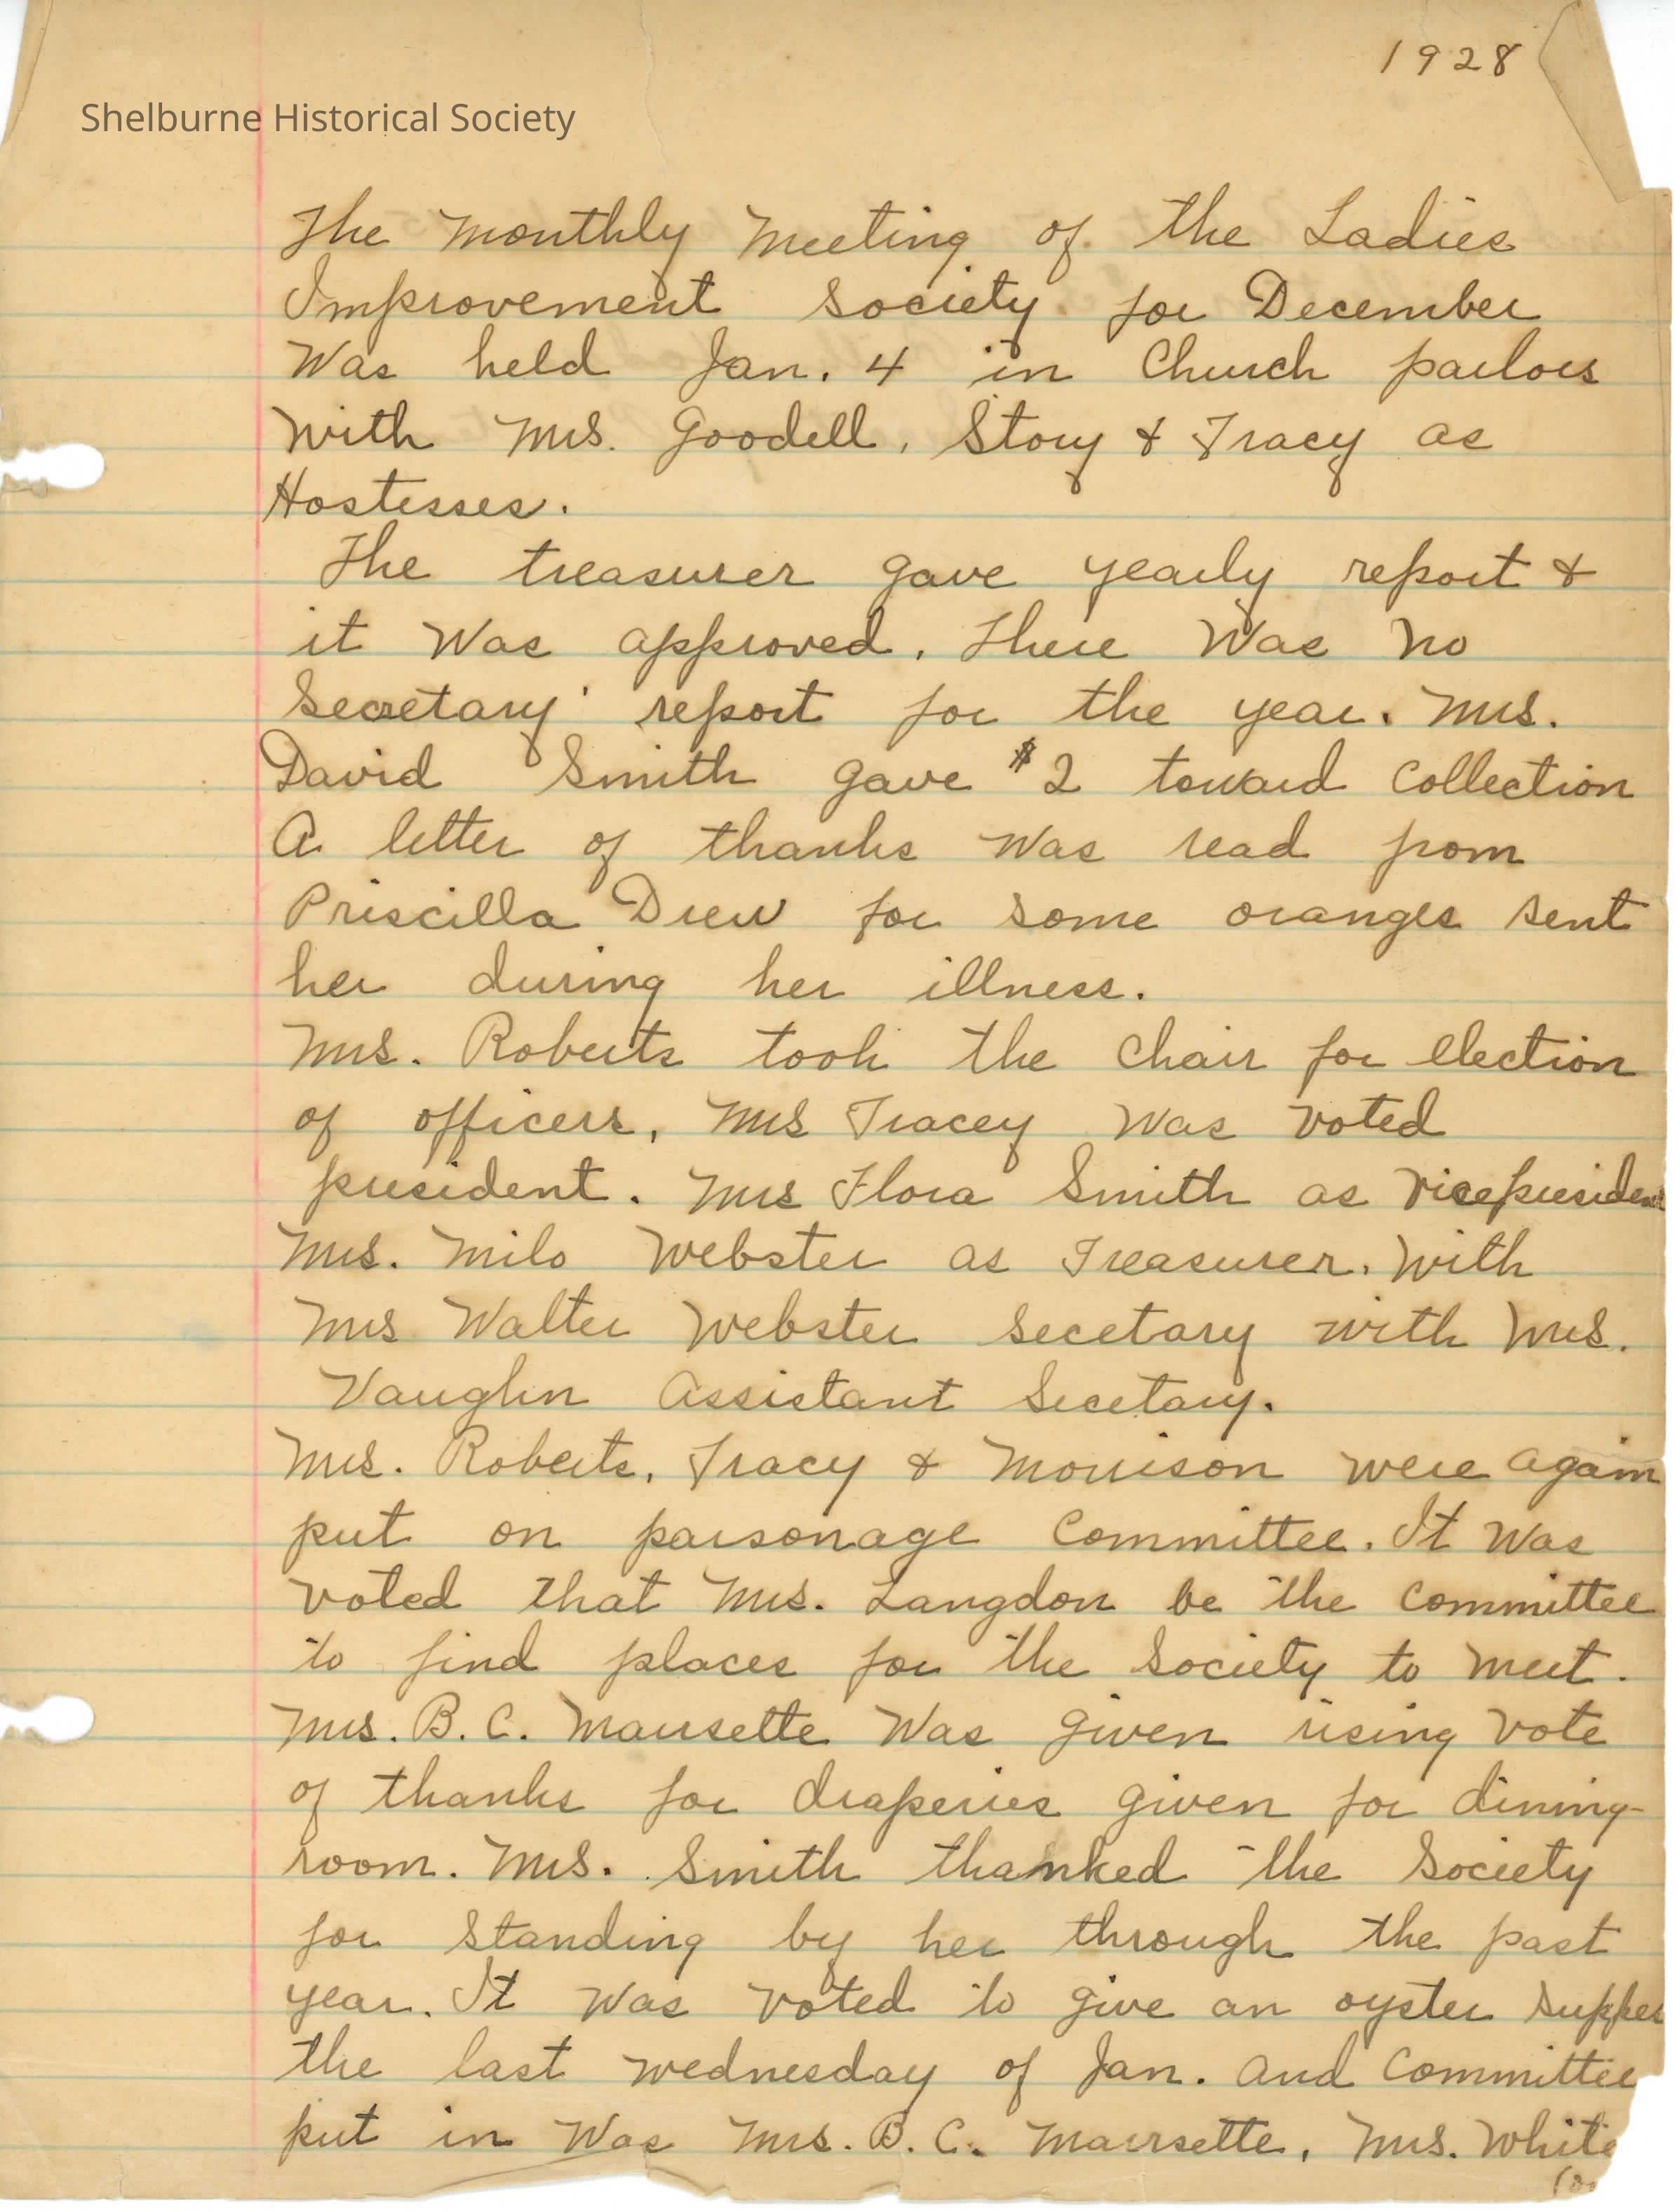 1928
Shelburne Historical Society
The monthly Meeting of the Ladies
Improvement Society for December
Was held Jan. 4 in Church parlors
With Mrs. Goodell, Story & Tracy as
Hostesses.
The treasurer gave yearly report &
it Was approved. There Was no
Secretary' report for the year. Mrs.
David Smith gave $2 toward Collection
A letter of thanks Was read from
Priscilla Drew for some oranges sent
her during her illness.
Mrs. Roberts took the Chair for election
of officers, Mrs Tracey Was voted
president. Mrs Flora Smith as Vicepresident
Mrs. Milo Webster as Treasurer. With
Mrs Walter Webster Secetary with Mrs.
Vaughn Assistant Secetary.
Mrs. Roberts, Tracy & Morrison were again
put on parsonage Committee. It Was
voted that Mrs. Langdon be the Committee
to find places for the Society to meet.
Mrs. B. C. Maursette Was given rising vote
of thanks for draperies given for dining-
room. Mrs. Smith thanked the Society
for standing by her through the past
year. It Was voted to give an oyster supper
the last Wednesday of Jan. and Committee
put in Was Mrs. B. C. Maursette, Mrs. White